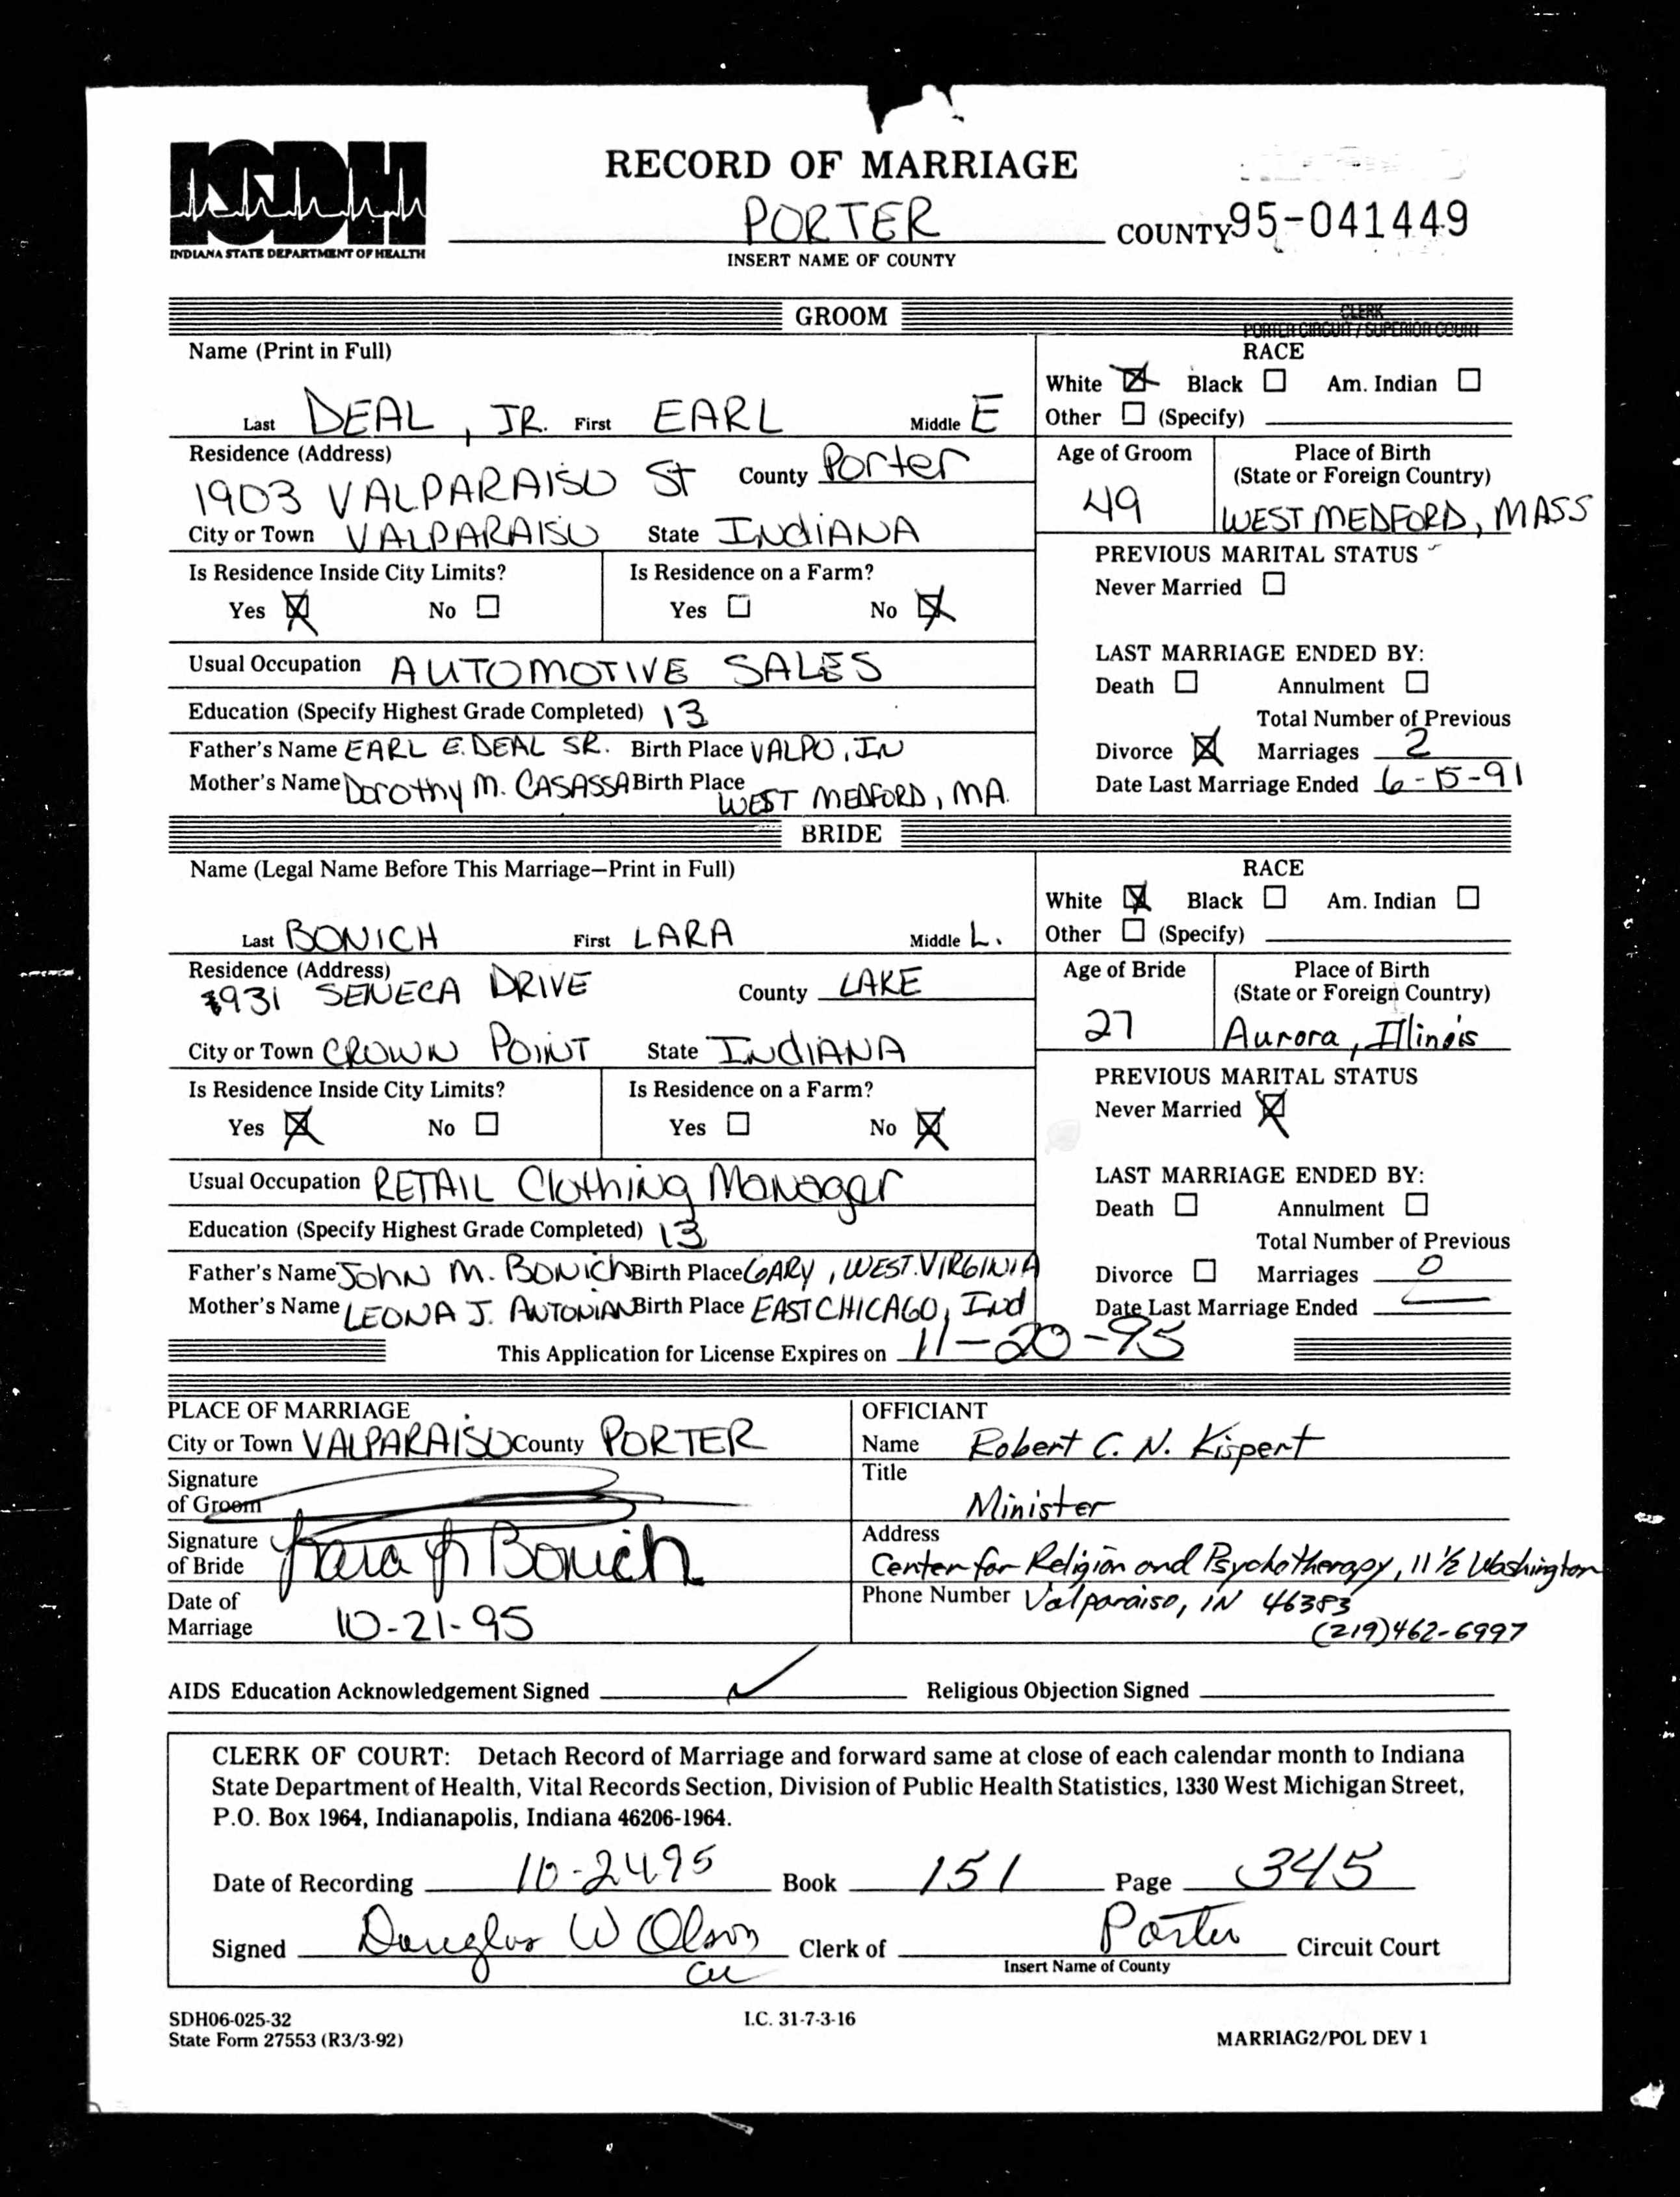 ISDH
INDIANA STATE DEPARTMENT OF HEALTH
RECORD OF MARRIAGE
PORTER COUNTY 95-041449
INSERT NAME OF COUNTY
GROOM
CLERK
PORTER CIRCUIT / SUPERIOR COURT
Name (Print in Full)
Last DEAL, JR. First EARL Middle E
RACE
White ☒ Black ☐ Am. Indian ☐
Other ☐ (Specify)
Residence (Address)
1903 VALPARAISO St County Porter
City or Town VALPARAISO State INdiANA
Age of Groom
49
Place of Birth
(State or Foreign Country)
WEST MEDFORD, MASS
Is Residence Inside City Limits?
Yes ☒ No ☐
Is Residence on a Farm?
Yes ☐ No ☒
PREVIOUS MARITAL STATUS
Never Married ☐
Usual Occupation AUTOMOTIVE SALES
Education (Specify Highest Grade Completed) 13
Father's Name EARL E. DEAL SR. Birth Place VALPO, IN
Mother's Name Dorothy M. CASASSA Birth Place WEST MEDFORD, MA.
LAST MARRIAGE ENDED BY:
Death ☐ Annulment ☐
Total Number of Previous
Divorce ☒ Marriages 2
Date Last Marriage Ended 6-15-91
BRIDE
Name (Legal Name Before This Marriage–Print in Full)
Last BONICH First LARA Middle L.
RACE
White ☒ Black ☐ Am. Indian ☐
Other ☐ (Specify)
Residence (Address)
931 SENECA DRIVE County LAKE
City or Town CROWN POINT State INdiANA
Age of Bride
27
Place of Birth
(State or Foreign Country)
Aurora, Illinois
Is Residence Inside City Limits?
Yes ☒ No ☐
Is Residence on a Farm?
Yes ☐ No ☒
PREVIOUS MARITAL STATUS
Never Married ☒
Usual Occupation RETAIL Clothing Manager
Education (Specify Highest Grade Completed) 13
Father's Name John M. BONICh Birth Place GARY, WEST. VIRGINIA
Mother's Name LEONA J. ANTONIAN Birth Place EAST CHICAGO, Ind
LAST MARRIAGE ENDED BY:
Death ☐ Annulment ☐
Total Number of Previous
Divorce ☐ Marriages 0
Date Last Marriage Ended
This Application for License Expires on 11-20-95
PLACE OF MARRIAGE
City or Town VALPARAISO County PORTER
Signature
of Groom
Signature
of Bride Lara L Bonich
Date of
Marriage 10-21-95
OFFICIANT
Name Robert C. N. Kispert
Title
Minister
Address
Center for Religion and Psychotherapy, 11½ Washington
Phone Number Valparaiso, IN 46383
(219)462-6997
AIDS Education Acknowledgement Signed ✓ Religious Objection Signed
CLERK OF COURT: Detach Record of Marriage and forward same at close of each calendar month to Indiana
State Department of Health, Vital Records Section, Division of Public Health Statistics, 1330 West Michigan Street,
P.O. Box 1964, Indianapolis, Indiana 46206-1964.
Date of Recording 10-24-95 Book 151 Page 345
Signed Douglas W Olson Clerk of Porter Circuit Court
Insert Name of County
SDH06-025-32
State Form 27553 (R3/3-92)
I.C. 31-7-3-16
MARRIAG2/POL DEV 1